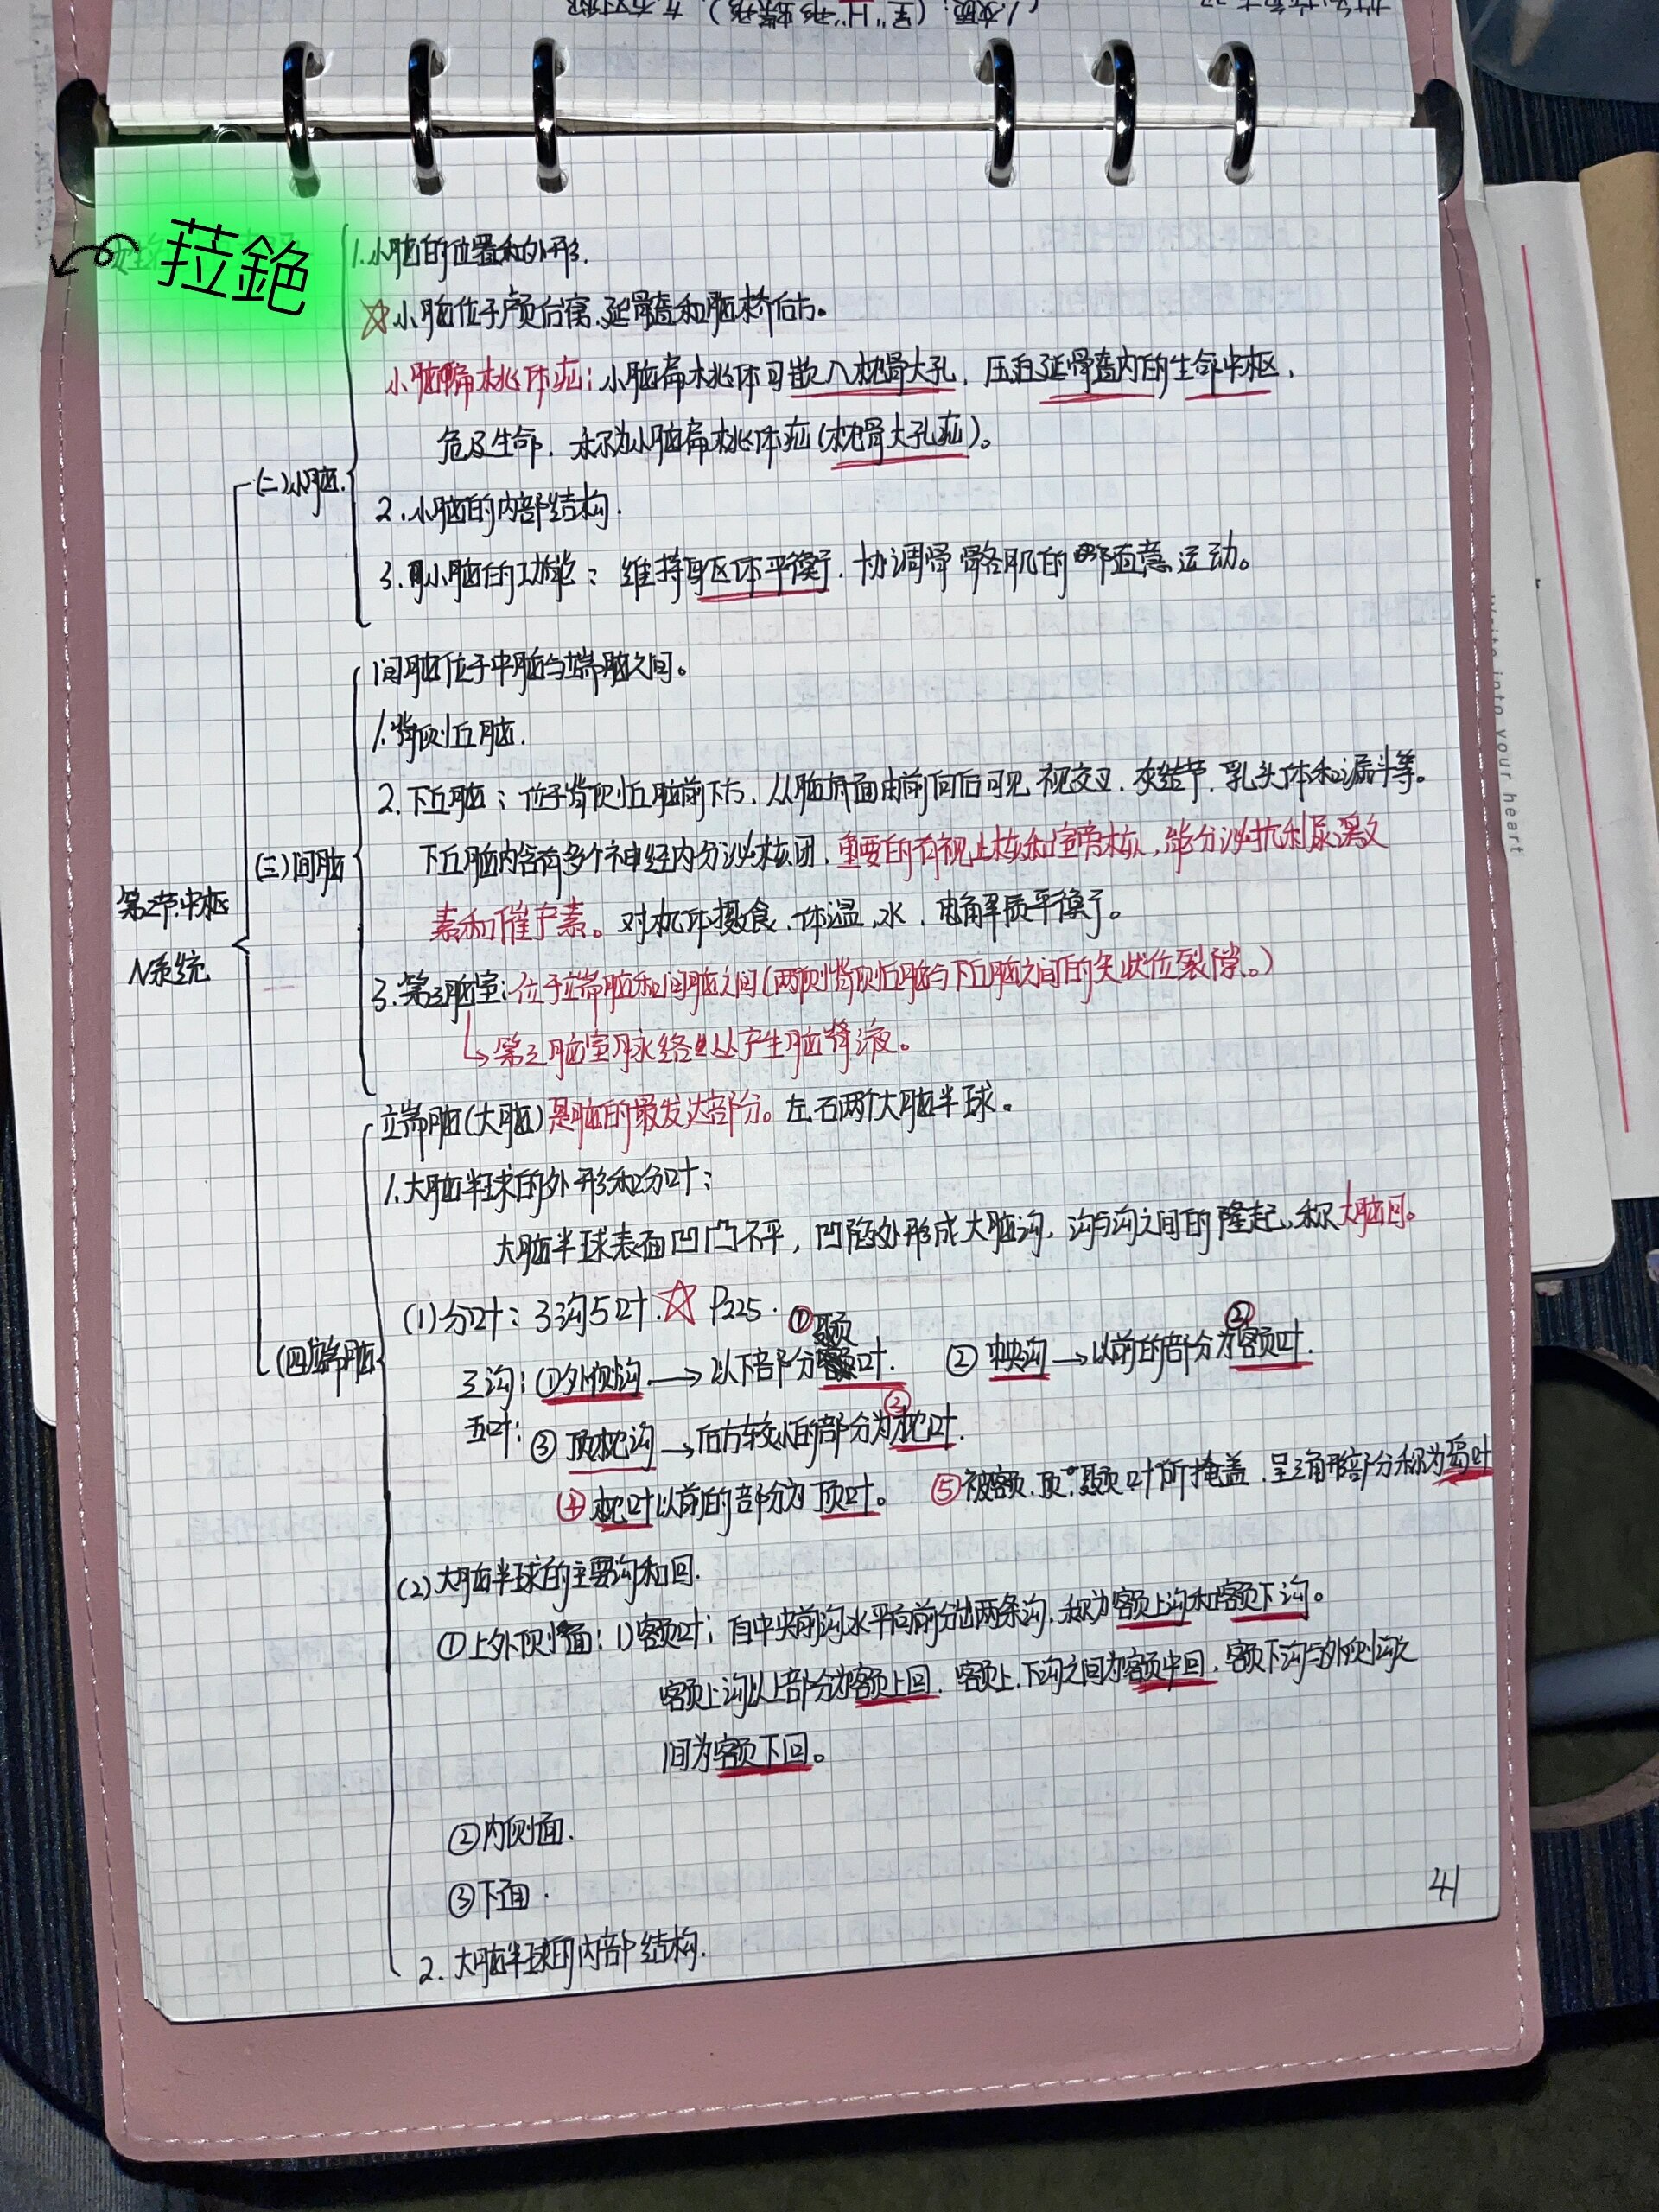 菈銫
第2节.中枢
N系统
(二)小脑.
1.小脑的位置和外形.
☆小脑位于颅后窝、延髓和脑桥后方。
小脑扁桃体疝:小脑扁桃体可嵌入枕骨大孔,压迫延髓内的生命中枢,
危及生命,称为小脑扁桃体疝(枕骨大孔疝)。
2.小脑的内部结构.
3.小脑的功能:维持躯体平衡,协调骨骼肌的随意运动。
(三)间脑
间脑位于中脑与端脑之间。
1.背侧丘脑.
2.下丘脑:位于背侧丘脑前下方,从脑底面由前向后可见 视交叉.灰结节.乳头体和漏斗等。
下丘脑内含有多个神经内分泌核团,重要的有视上核和室旁核,能分泌抗利尿激
素和催产素。对机体摄食.体温.水.电解质平衡。
3.第三脑室:位于端脑和间脑之间(两侧背侧丘脑与下丘脑之间的矢状位裂隙。)
↳第三脑室脉络丛产生脑脊液。
(四)端脑
端脑(大脑)是脑的最发达部分。左、右两个大脑半球。
1.大脑半球的外形和分叶:
大脑半球表面凹凸不平,凹陷处形成大脑沟,沟与沟之间的隆起,称大脑回。
(1)分叶:3沟5叶.☆ P225.
三沟:①外侧沟→以下部分①颞叶. ②中央沟→以前的部分为②额叶.
五叶:③顶枕沟→后方较小的部分为③枕叶.
④枕叶以前的部分为顶叶。 ⑤被额.顶.颞叶所掩盖.呈三角形部分称为岛叶
(2)大脑半球的主要沟和回.
①上外侧面:1)额叶:自中央前沟水平向前分出两条沟,称为额上沟和额下沟。
额上沟以上部分为额上回,额上.下沟之间为额中回,额下沟与外侧沟之
间为额下回。
②内侧面.
③下面.
2.大脑半球的内部结构.
41
Write into your heart